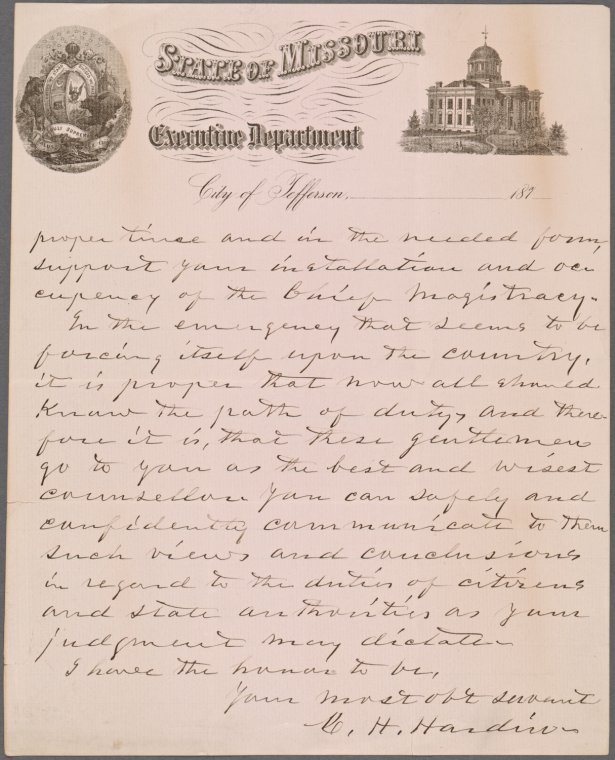 State of Missouri
Executive Department
City of Jefferson, 187
proper time and in the needed form,
support your installation and oc=
cupency of the Chief Magistracy.
In the emergency that seems to be
forcing itself upon the country,
it is proper that now all should
know the path of duty, and there=
fore it is, that these gentlemen
go to you as the best and wisest
counsellor. You can safely and
confidently communicate to them
such views and conclusions
in regard to the duties of citizens
and state authorities as your
judgment may dictate.
I have the honor to be,
Your most obt servant
C. H. Hardin